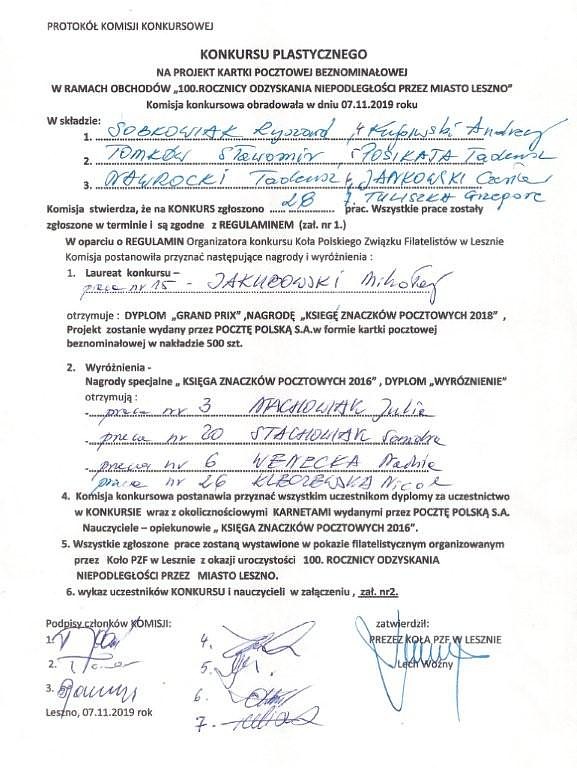 PROTOKÓŁ KOMISJI KONKURSOWEJ
KONKURSU PLASTYCZNEGO
NA PROJEKT KARTKI POCZTOWEJ BEZNOMINAŁOWEJ
W RAMACH OBCHODÓW „100.ROCZNICY ODZYSKANIA NIEPODLEGŁOŚCI PRZEZ MIASTO LESZNO”
Komisja konkursowa obradowała w dniu 07.11.2019 roku
W składzie:
1. SOBKOWIAK Ryszard 4 Kujawski Andrzej
2. TOMKÓW Sławomir 5 POSIKATA Tadeusz
3. NAWROCKI Tadeusz 6 JANKOWSKI
7. TULISZKA Grzegorz
Komisja stwierdza, że na KONKURS zgłoszono ...... 28 ...... prac. Wszystkie prace zostały
zgłoszone w terminie i są zgodne z REGULAMINEM (zał. nr 1.)
W oparciu o REGULAMIN Organizatora konkursu Koła Polskiego Związku Filatelistów w Lesznie
Komisja postanowiła przyznać następujące nagrody i wyróżnienia :
1. Laureat konkursu –
praca nr 15 - JAKUBOWSKI Mikołaj
otrzymuje : DYPLOM „GRAND PRIX” ,NAGRODĘ „KSIEGĘ ZNACZKÓW POCZTOWYCH 2018” ,
Projekt zostanie wydany przez POCZTĘ POLSKĄ S.A.w formie kartki pocztowej
beznominałowej w nakładzie 500 szt.
2. Wyróżnienia -
Nagrody specjalne „ KSIĘGA ZNACZKÓW POCZTOWYCH 2016” , DYPLOM „WYRÓŻNIENIE”
otrzymują :
- praca nr 3 MACHOWIAK Julia
- praca nr 20 STACHOWIAK Sandra
- praca nr 6 WENECKA Nadia
- praca nr 26
4. Komisja konkursowa postanawia przyznać wszystkim uczestnikom dyplomy za uczestnictwo
w KONKURSIE wraz z okolicznościowymi KARNETAMI wydanymi przez POCZTĘ POLSKĄ S.A.
Nauczyciele – opiekunowie „ KSIĘGA ZNACZKÓW POCZTOWYCH 2016”.
5. Wszystkie zgłoszone prace zostaną wystawione w pokazie filatelistycznym organizowanym
przez Koło PZF w Lesznie z okazji uroczystości 100. ROCZNICY ODZYSKANIA
NIEPODLEGŁOŚCI PRZEZ MIASTO LESZNO.
6. wykaz uczestników KONKURSU i nauczycieli w załączeniu , zał. nr2.
Podpisy członków KOMISJI: zatwierdził:
1. 4. PREZEZ KOŁA PZF W LESZNIE
2. 5. Lech Woźny
3. 6.
Leszno, 07.11.2019 rok 7.